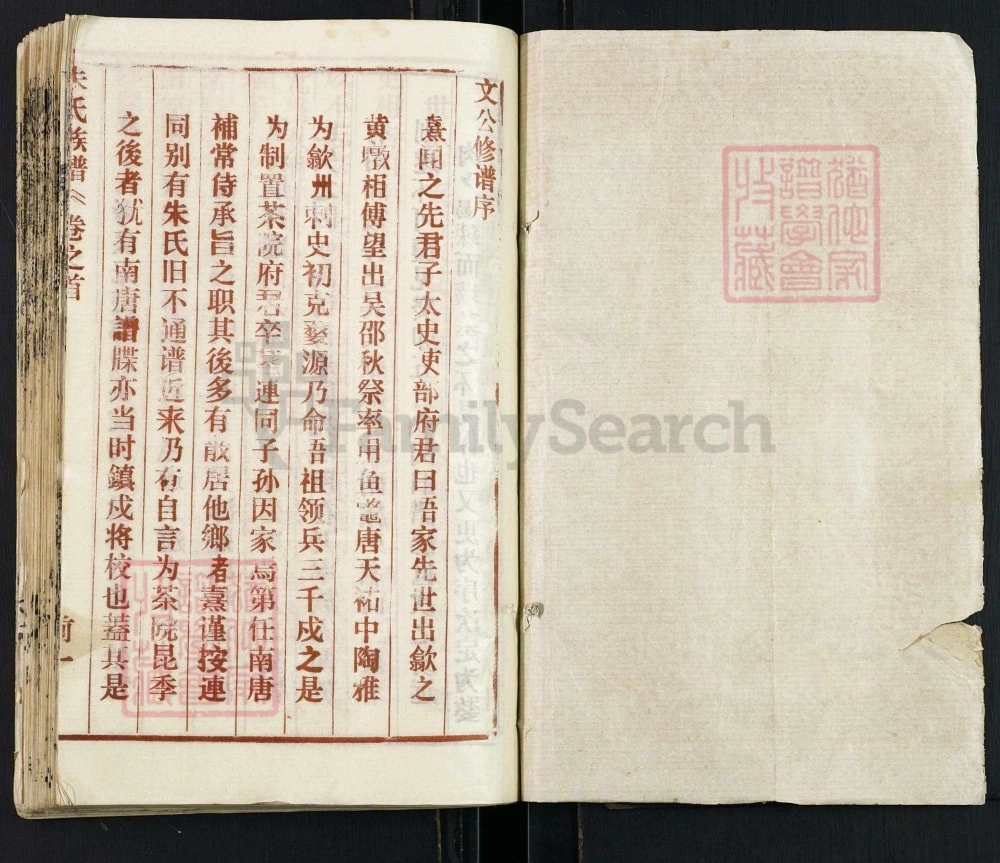 文公修谱序
熹闻之先君子太史吏部府君曰吾家先世出歙之
黄墩相傅望出吴郡秋祭率用鱼鼈唐天祐中陶雅
为歙州刺史初克婺源乃命吾祖领兵三千戍之是
为制置茶院府君卒 连同子孙因家焉第任南唐
補常侍承旨之职其後多有散居他鄉者熹谨按連
同别有朱氏旧不通谱近来乃有自言为茶院昆季
之後者犹有南唐譜牒亦当时鎮戍将校也蓋其是
朱氏族谱 卷之首
FamilySearch